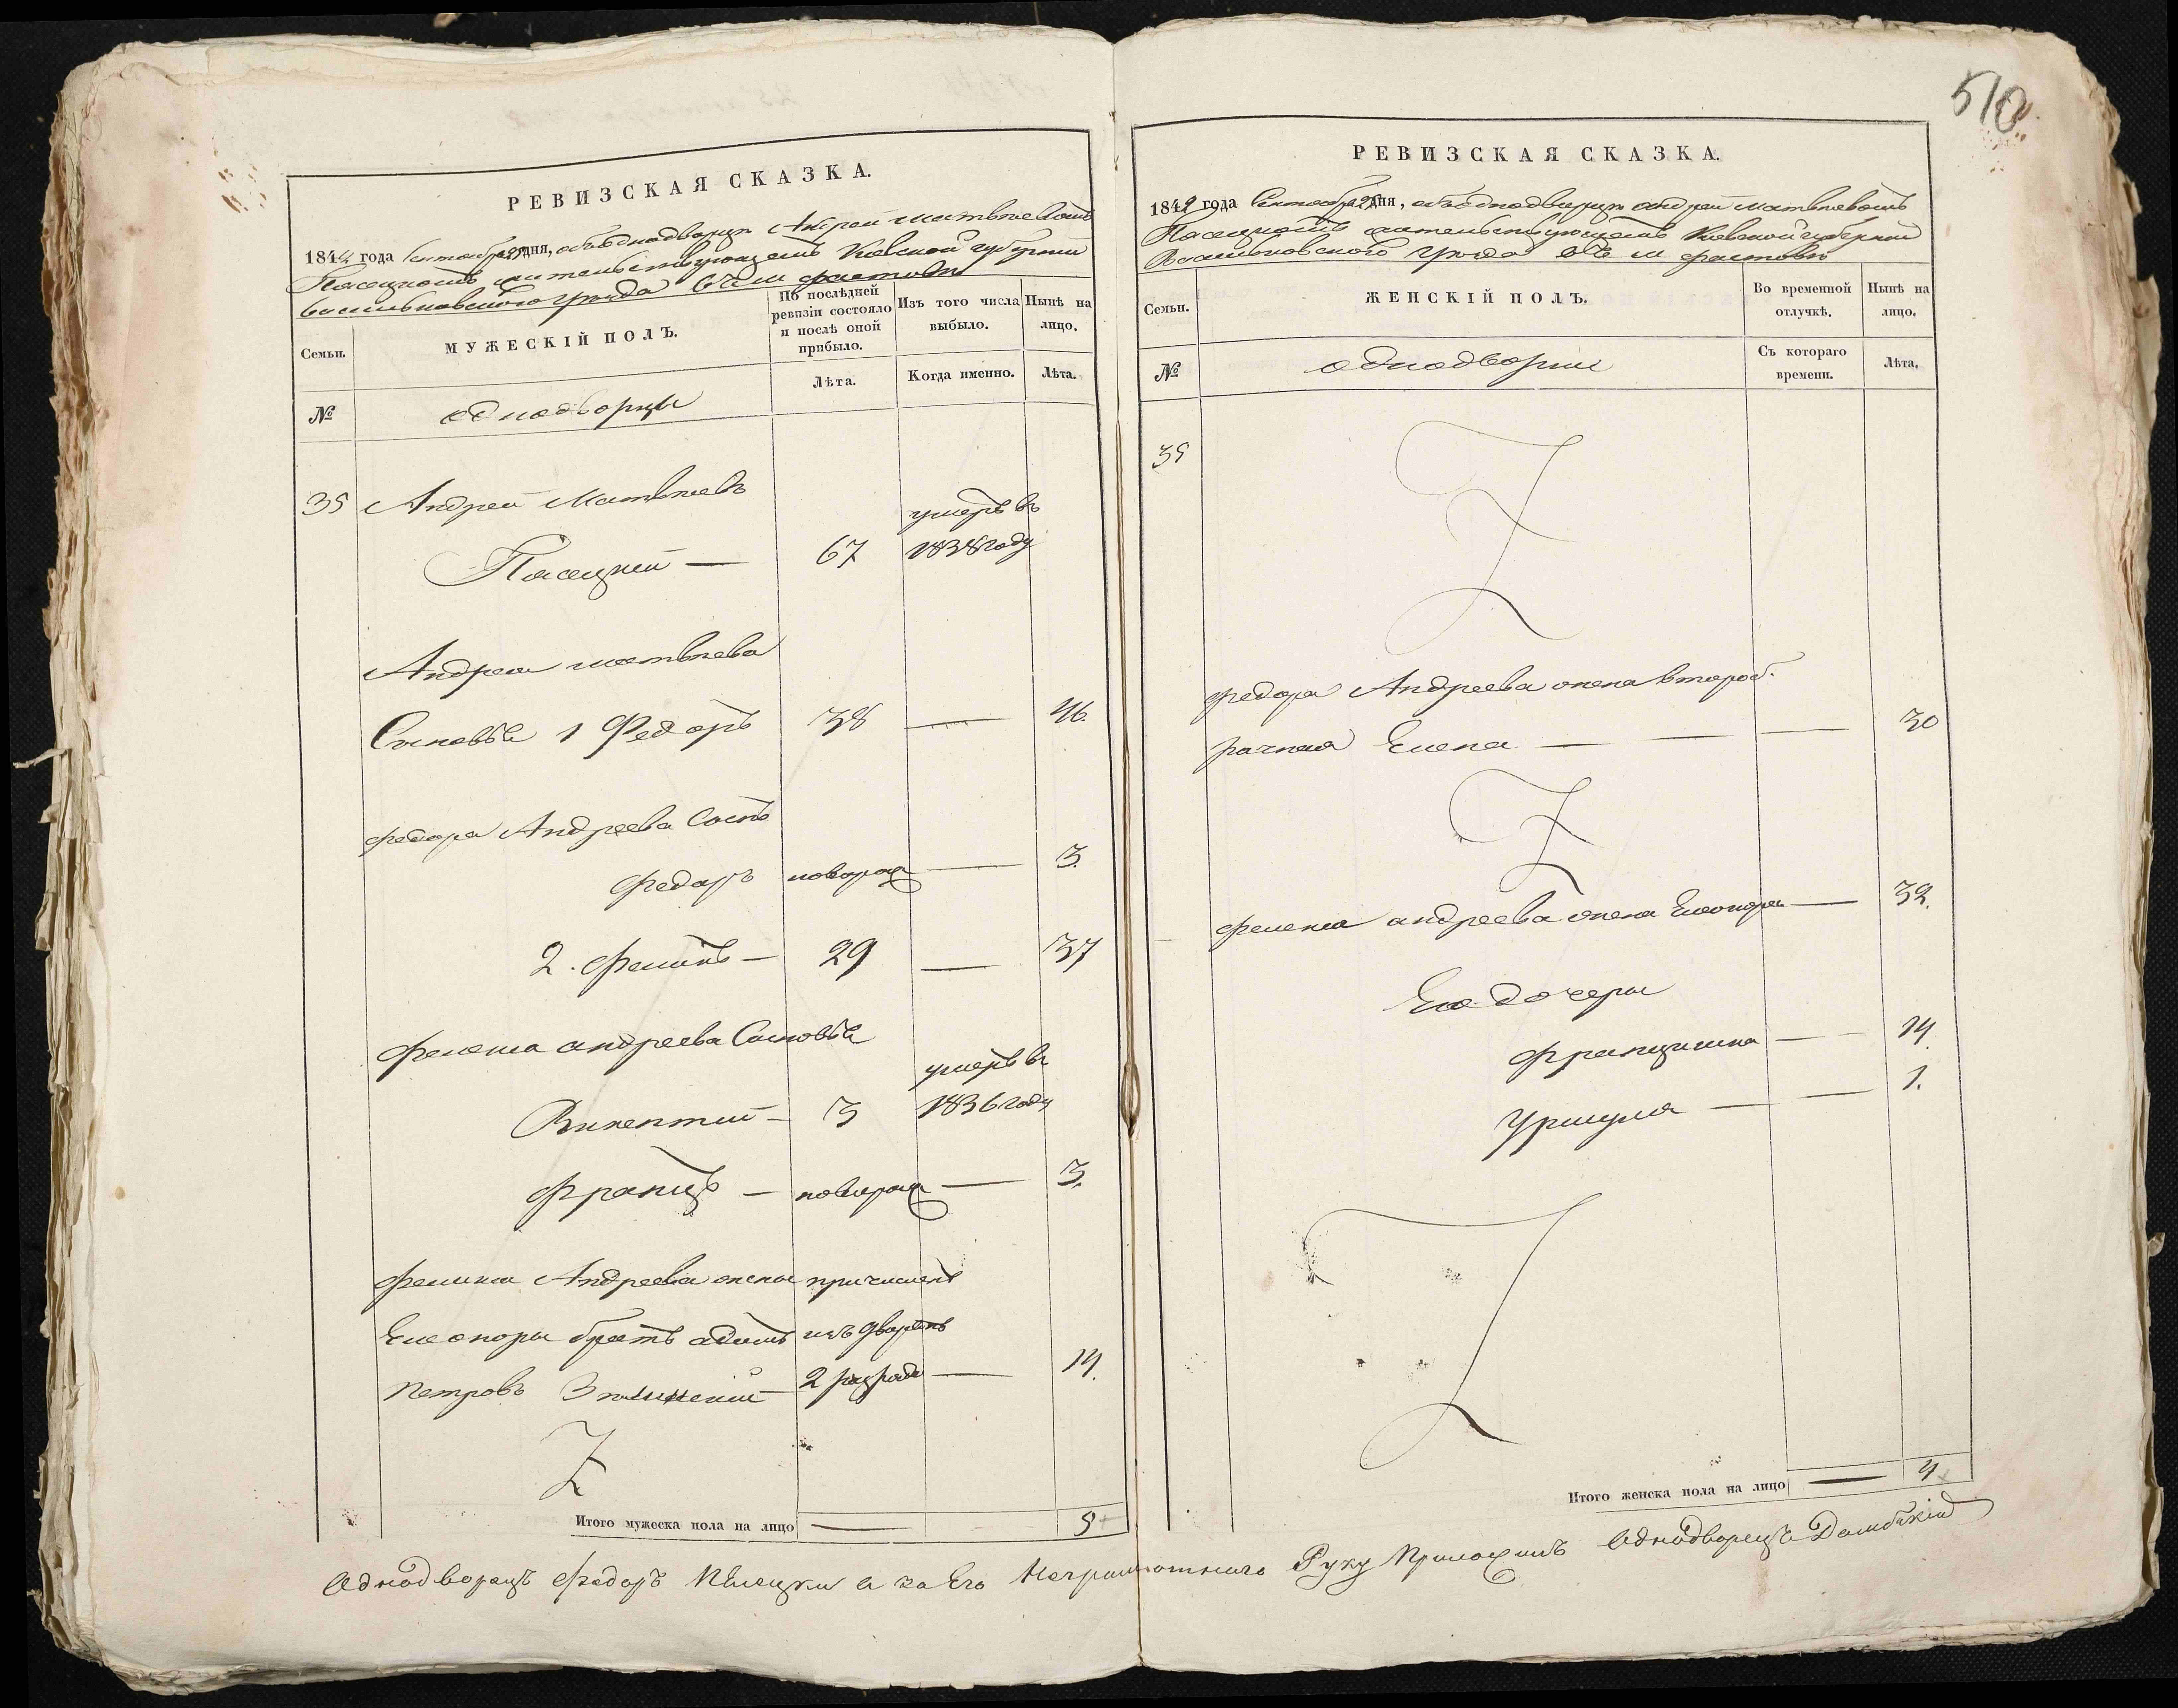 510
РЕВИЗСКАЯ СКАЗКА.
1842 года Сентября дня, объ однодворце Андрей Матвеевомъ
Пасецкомъ жительствующемъ Киевской губернии
Васильковского уезда въ м Фастове
Семьи.
МУЖЕСКІЙ ПОЛЪ.
По послѣдней ревизіи состояло и послѣ оной прибыло.
Изъ того числа выбыло.
Нынѣ на лицо.
№
однодворци
Лѣта.
Когда именно.
Лѣта.
35 Андрей Матвеевъ
умеръ въ
Пасецкий — 67 1838 году
Андрея матвеева
Сыновья 1 Федоръ 38 — 46.
федора Андреева Сынъ
федоръ новорож — 3.
2. феликсъ — 29 — 37
феликса андреева Сыновья
умеръ въ
Викентий — 3 1836 году
Францъ — новорож — 3.
феликса Андреева жены причисленъ
Елеоноры братъ адамъ изъ дворянъ
Петровъ 2 разряда — 14.
Итого мужеска пола на лицо — 5
РЕВИЗСКАЯ СКАЗКА.
1842 года Сентября дня, объ однодворце андрей Матвеевомъ
Пасецкомъ жительствующемъ Киевской губернии
Васильковского уезда въ м фастове
Семьи.
ЖЕНСКІЙ ПОЛЪ.
Во временной отлучкѣ.
Нынѣ на лицо.
№
однодворки
Съ котораго времени.
Лѣта.
35
федора Андреева жена второб.
рачная Елена — — — 30
феликса андреева жена Елеонора — 32.
Ево дочери
францишка — — 14.
Уршуля — — 1.
Итого женска пола на лицо — 4
Однодворецъ Федоръ Пасецки а за Его Неграмотнаго Руку Приложилъ Однодворецъ Домбскій